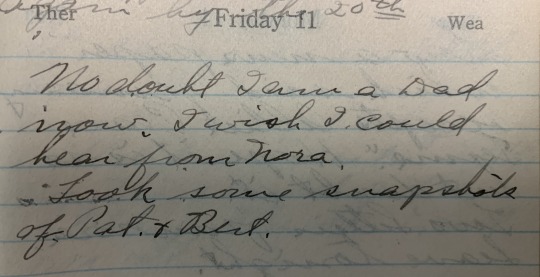 by the 20th
Ther Friday 11 Wea
No doubt I am a Dad
now. I wish I could
hear from Nora.
Took some snapshots
of Pat. & Bert.